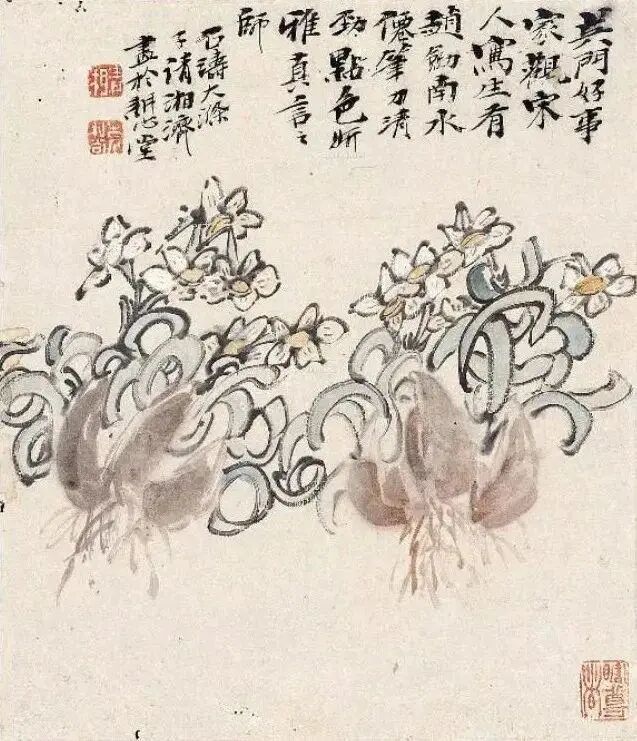 吳門好事
家觀宋
人寫生有
趙南水
僊筆力清
勁點色妍
雅真之
師
石濤大滌
子清湘濟
畫於耕心堂